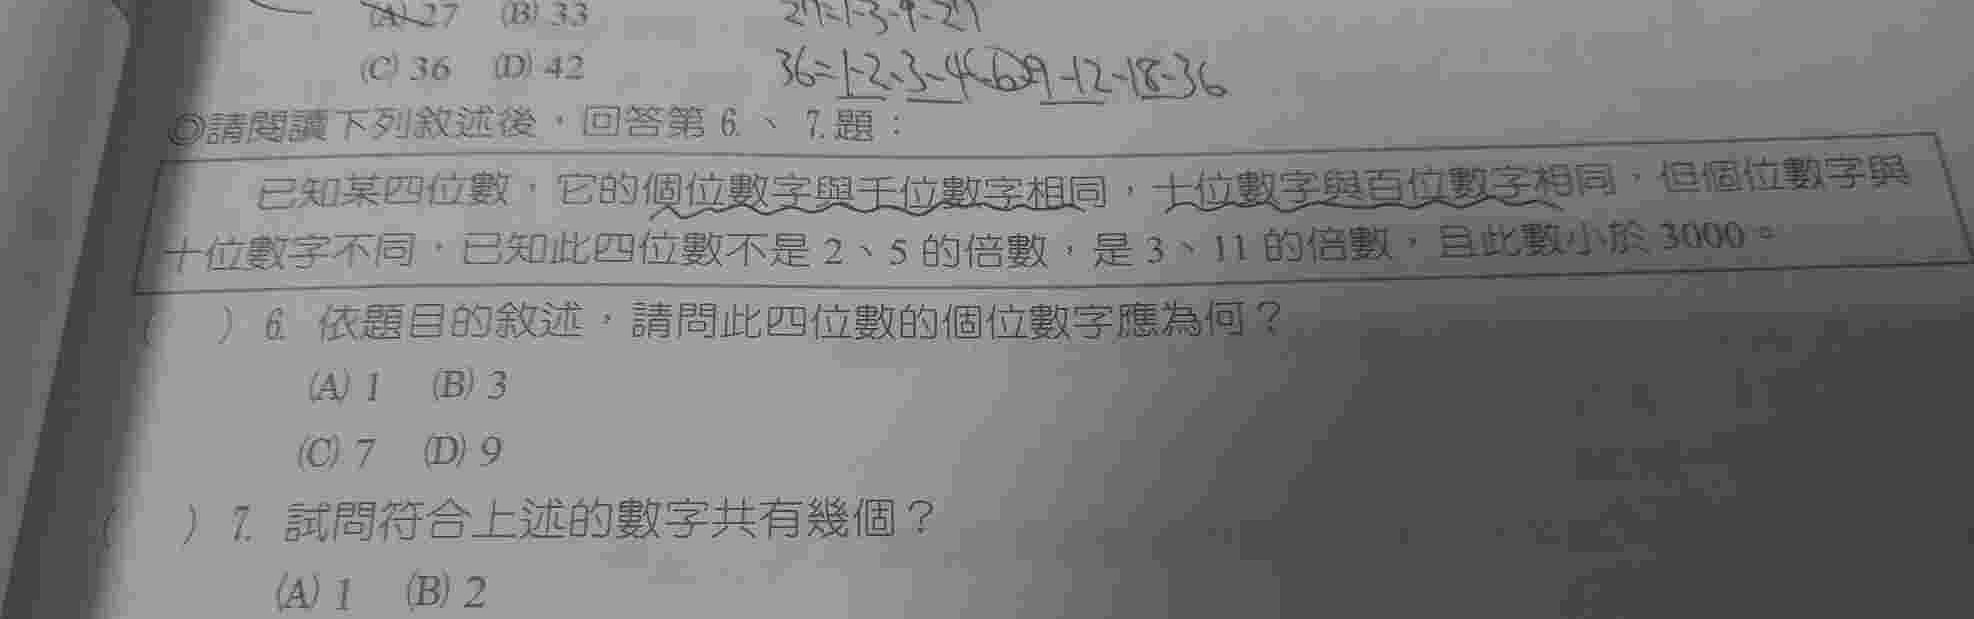 (A) 27 (B) 33
27=1-3-9-27
(C) 36 (D) 42
36=1-2-3-4-6-9-12-18-36
◎請閱讀下列敘述後，回答第 6.、7.題：
已知某四位數，它的個位數字與千位數字相同，十位數字與百位數字相同，但個位數字與
十位數字不同，已知此四位數不是 2、5 的倍數，是 3、11 的倍數，且此數小於 3000。
( ) 6. 依題目的敘述，請問此四位數的個位數字應為何？
(A) 1 (B) 3
(C) 7 (D) 9
( ) 7. 試問符合上述的數字共有幾個？
(A) 1 (B) 2